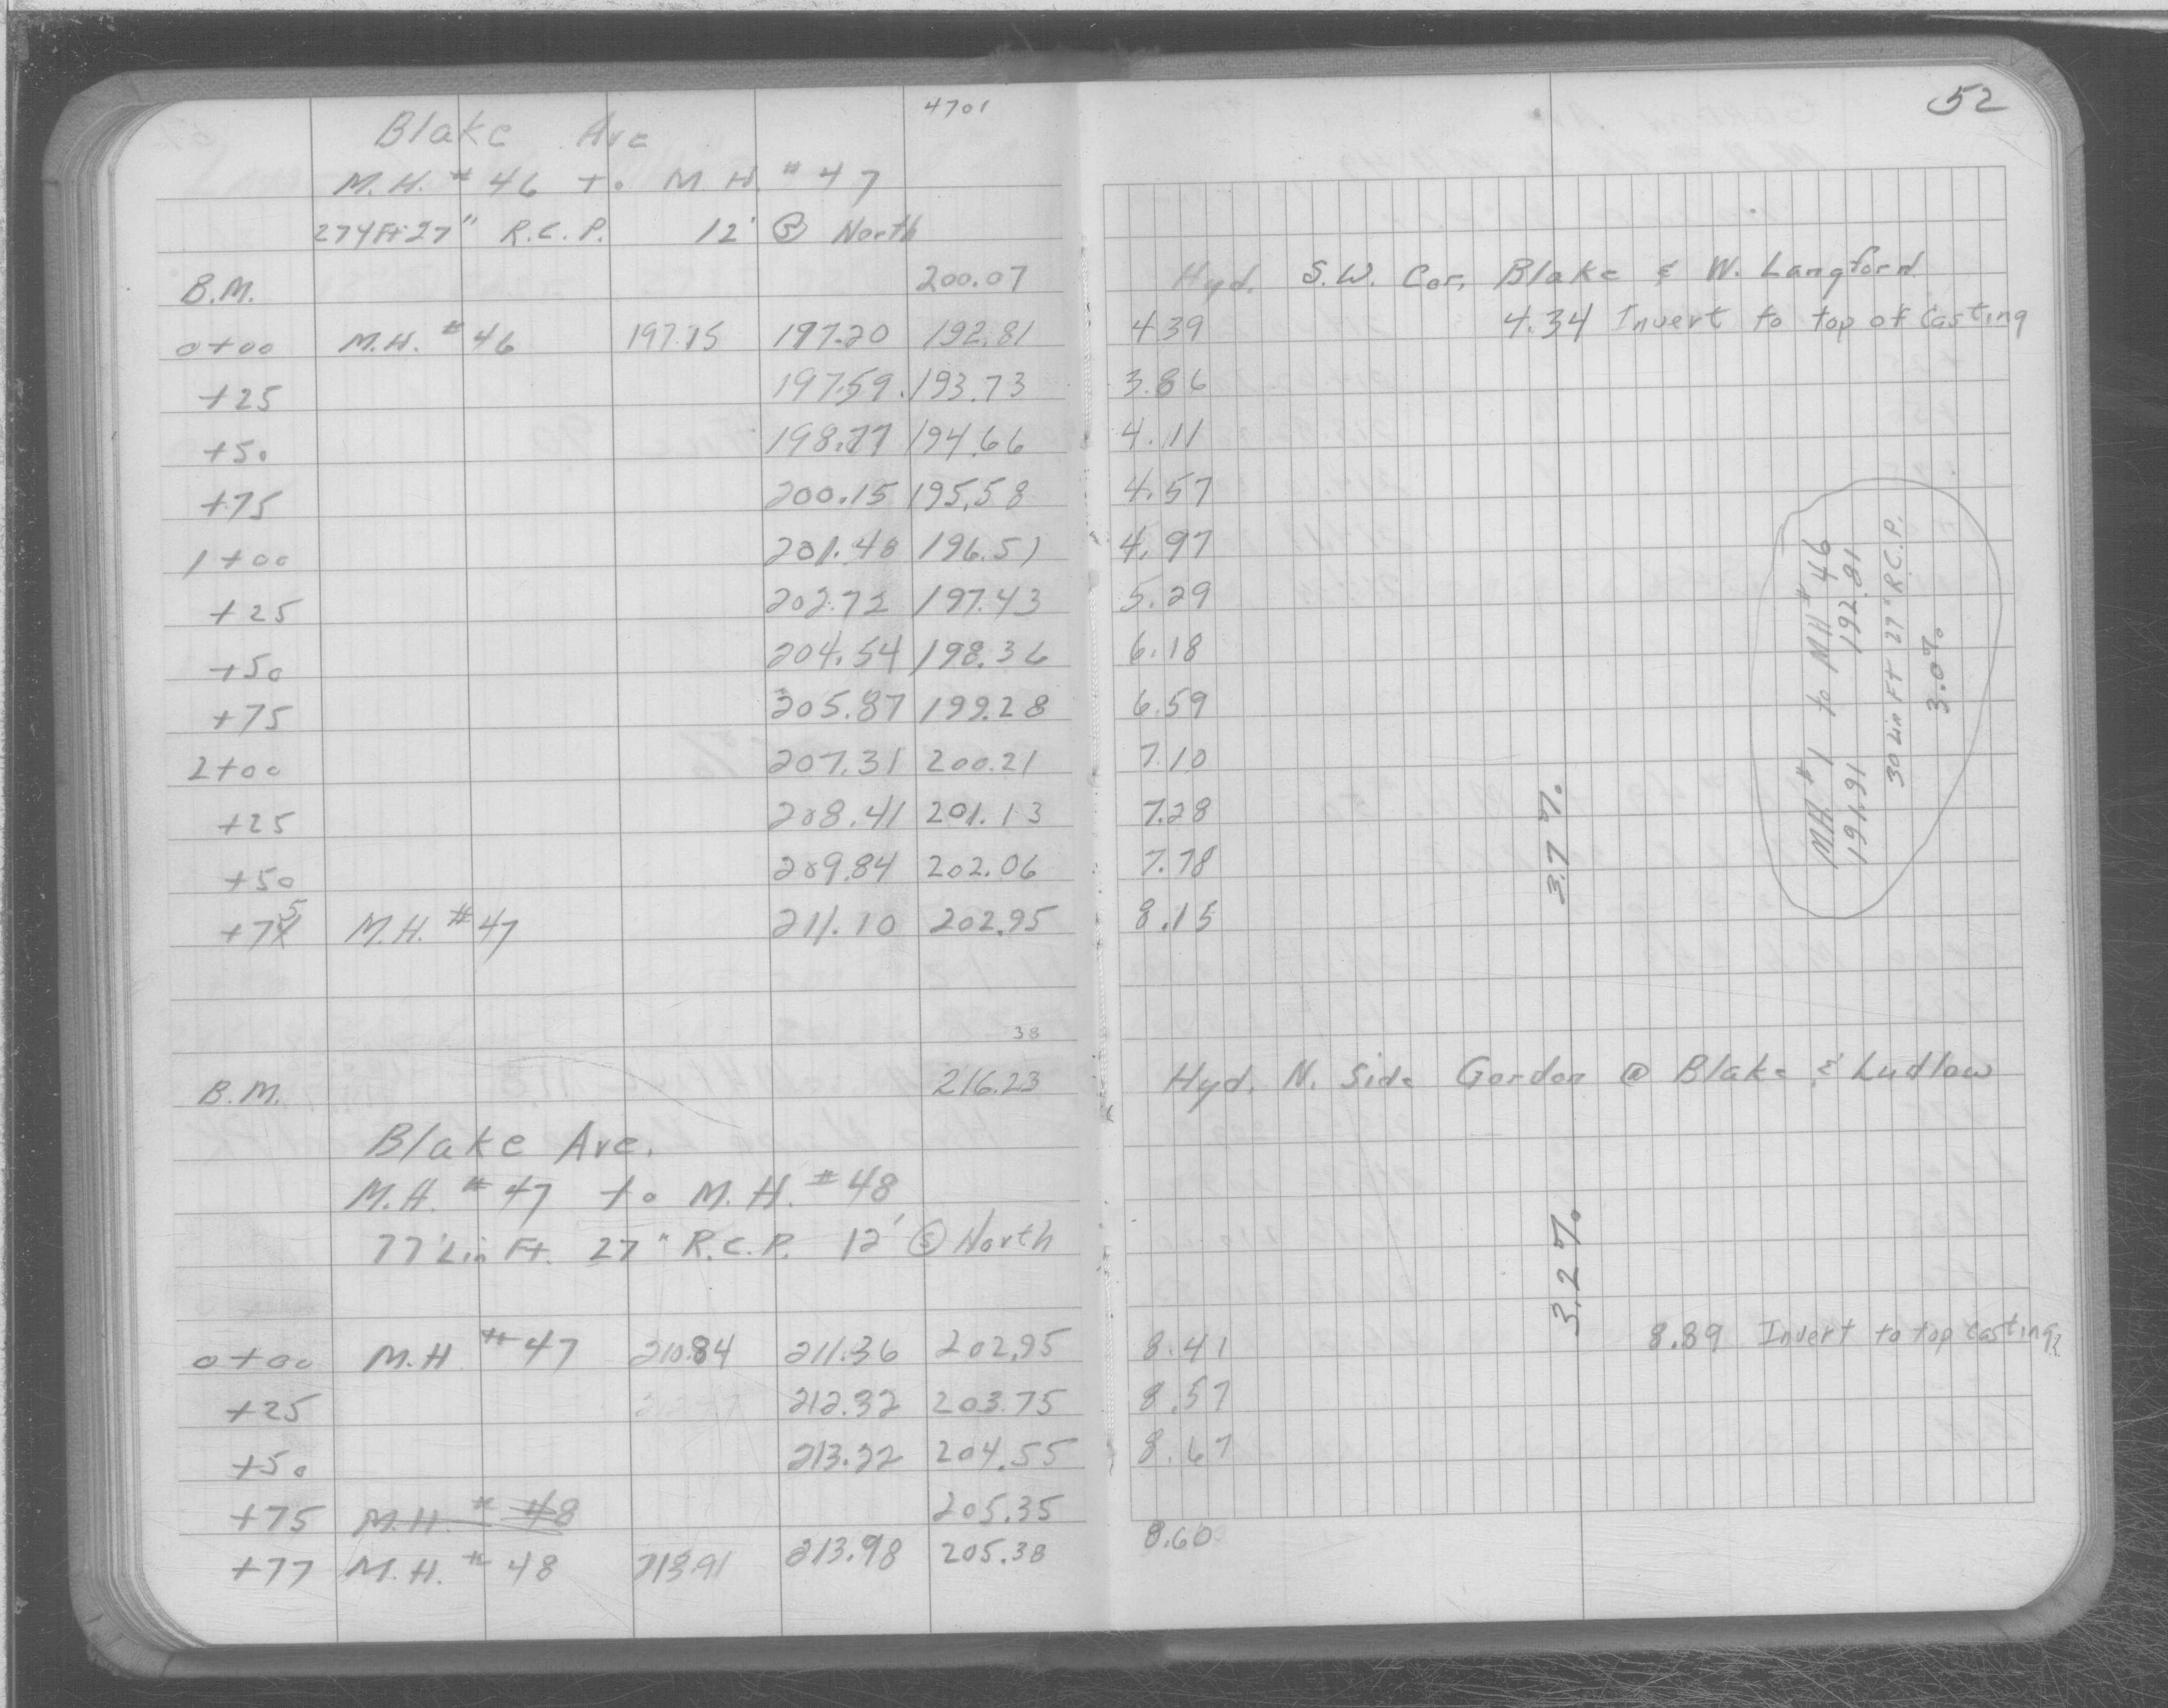 4701
52
Blake Ave
M.H. # 46 to M.H. # 47
274 Ft 27" R.C.P. 12' Ⓢ North
B.M. 200.07 Hyd. S.W. Cor. Blake & W. Langford
0+00 M.H. # 46 197.15 197.20 192.81 4.39 4.34 Invert to top of Casting
+25 197.59 193.73 3.86
+50 198.77 194.66 4.11
+75 200.15 195.58 4.57
1+00 201.48 196.51 4.97
+25 202.72 197.43 5.29
+50 204.54 198.36 6.18
+75 205.87 199.28 6.59
2+00 207.31 200.21 7.10
+25 208.41 201.13 7.28
+50 209.84 202.06 7.78
+75 M.H. # 47 211.10 202.95 8.15
3.7%
MH # 1 to MH # 46
191.91 192.81
30 Lin Ft 27" R.C.P.
3.0%
38
B.M. 216.23 Hyd. N. Side Gordon @ Blake & Ludlow
Blake Ave.
M.H. # 47 to M.H. # 48
77 Lin Ft. 27" R.C.P. 12' Ⓢ North
3.2%
0+00 M.H # 47 210.84 211.36 202.95 8.41 8.89 Invert to top casting
+25 212.32 203.75 8.57
+50 213.22 204.55 8.67
+75 M.H. # 48 205.35
+77 M.H. # 48 213.91 213.98 205.38 8.60